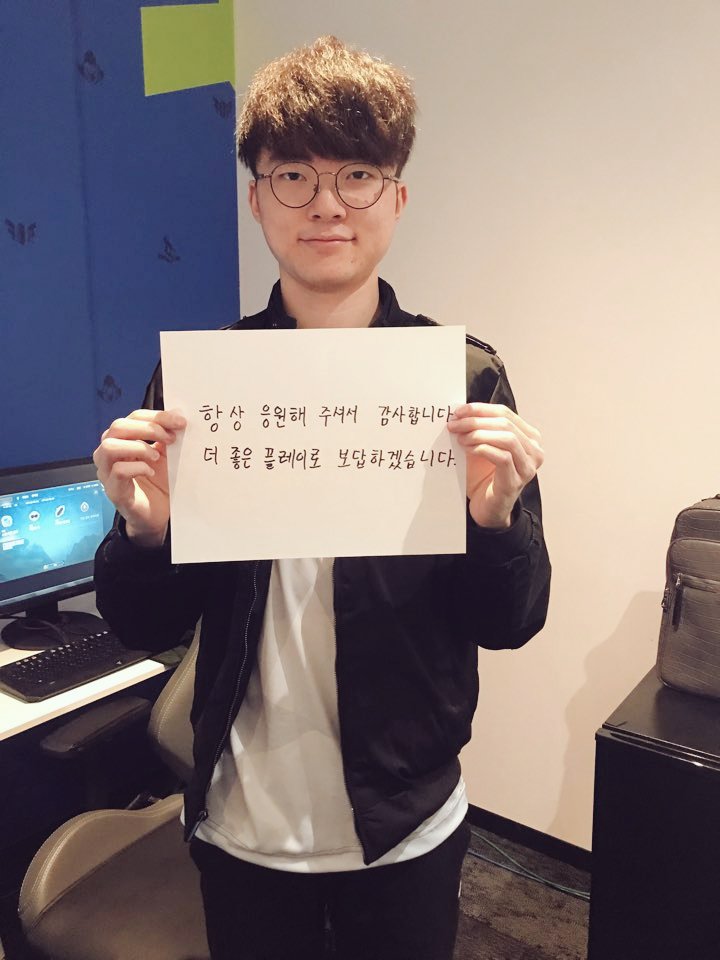 항상 응원해 주셔서 감사합니다
더 좋은 플레이로 보답하겠습니다.